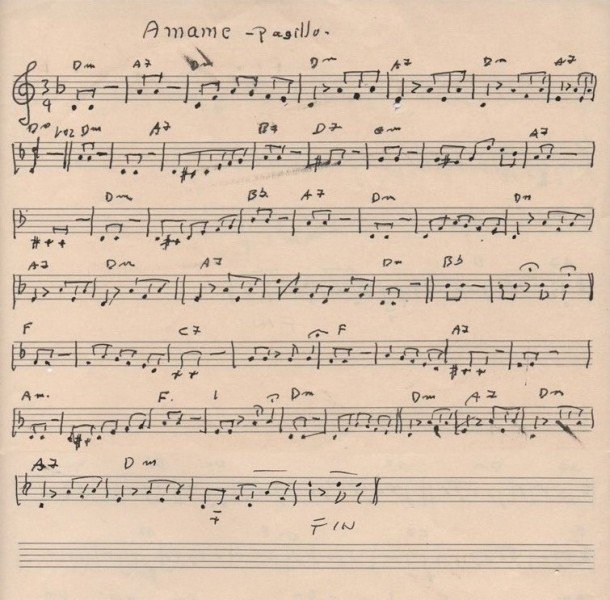 Amame - Pasillo.
Dm A7 Dm Dm A7 Dm A7
3 4
Voz Dm A7 B7 D7 A7
Dm Bb. A7 Dm Dm
A7 Dm A7 Dm Bb
F C7 F A7
Am. F. Dm Dm A7 Dm
A7 Dm
FIN